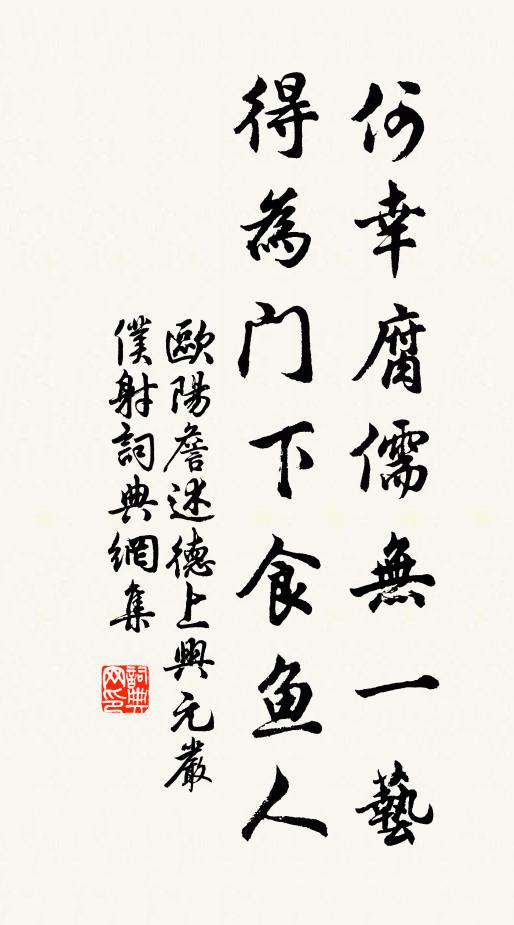 何幸腐儒無一藝
得為门下食鱼人
歐陽詹述德上興元嚴
僕射詞典網集
詞典网印